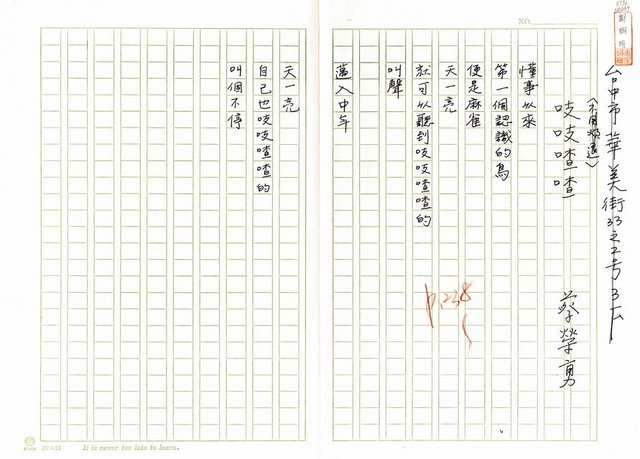 台中市華美街33之2号3F
(不用煩退)
吱吱喳喳
蔡榮勇
懂事以來
第一個認識的鳥
便是麻雀
天一亮
就可以聽到吱吱喳喳的
叫聲
邁入中年
天一亮
自己也吱吱喳喳的
叫個不停
p.238
NO.
It is never too late to learn.